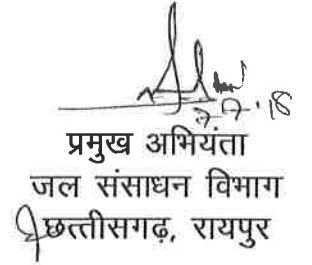 7.7.18
प्रमुख अभियंता
जल संसाधन विभाग
छत्तीसगढ़, रायपुर